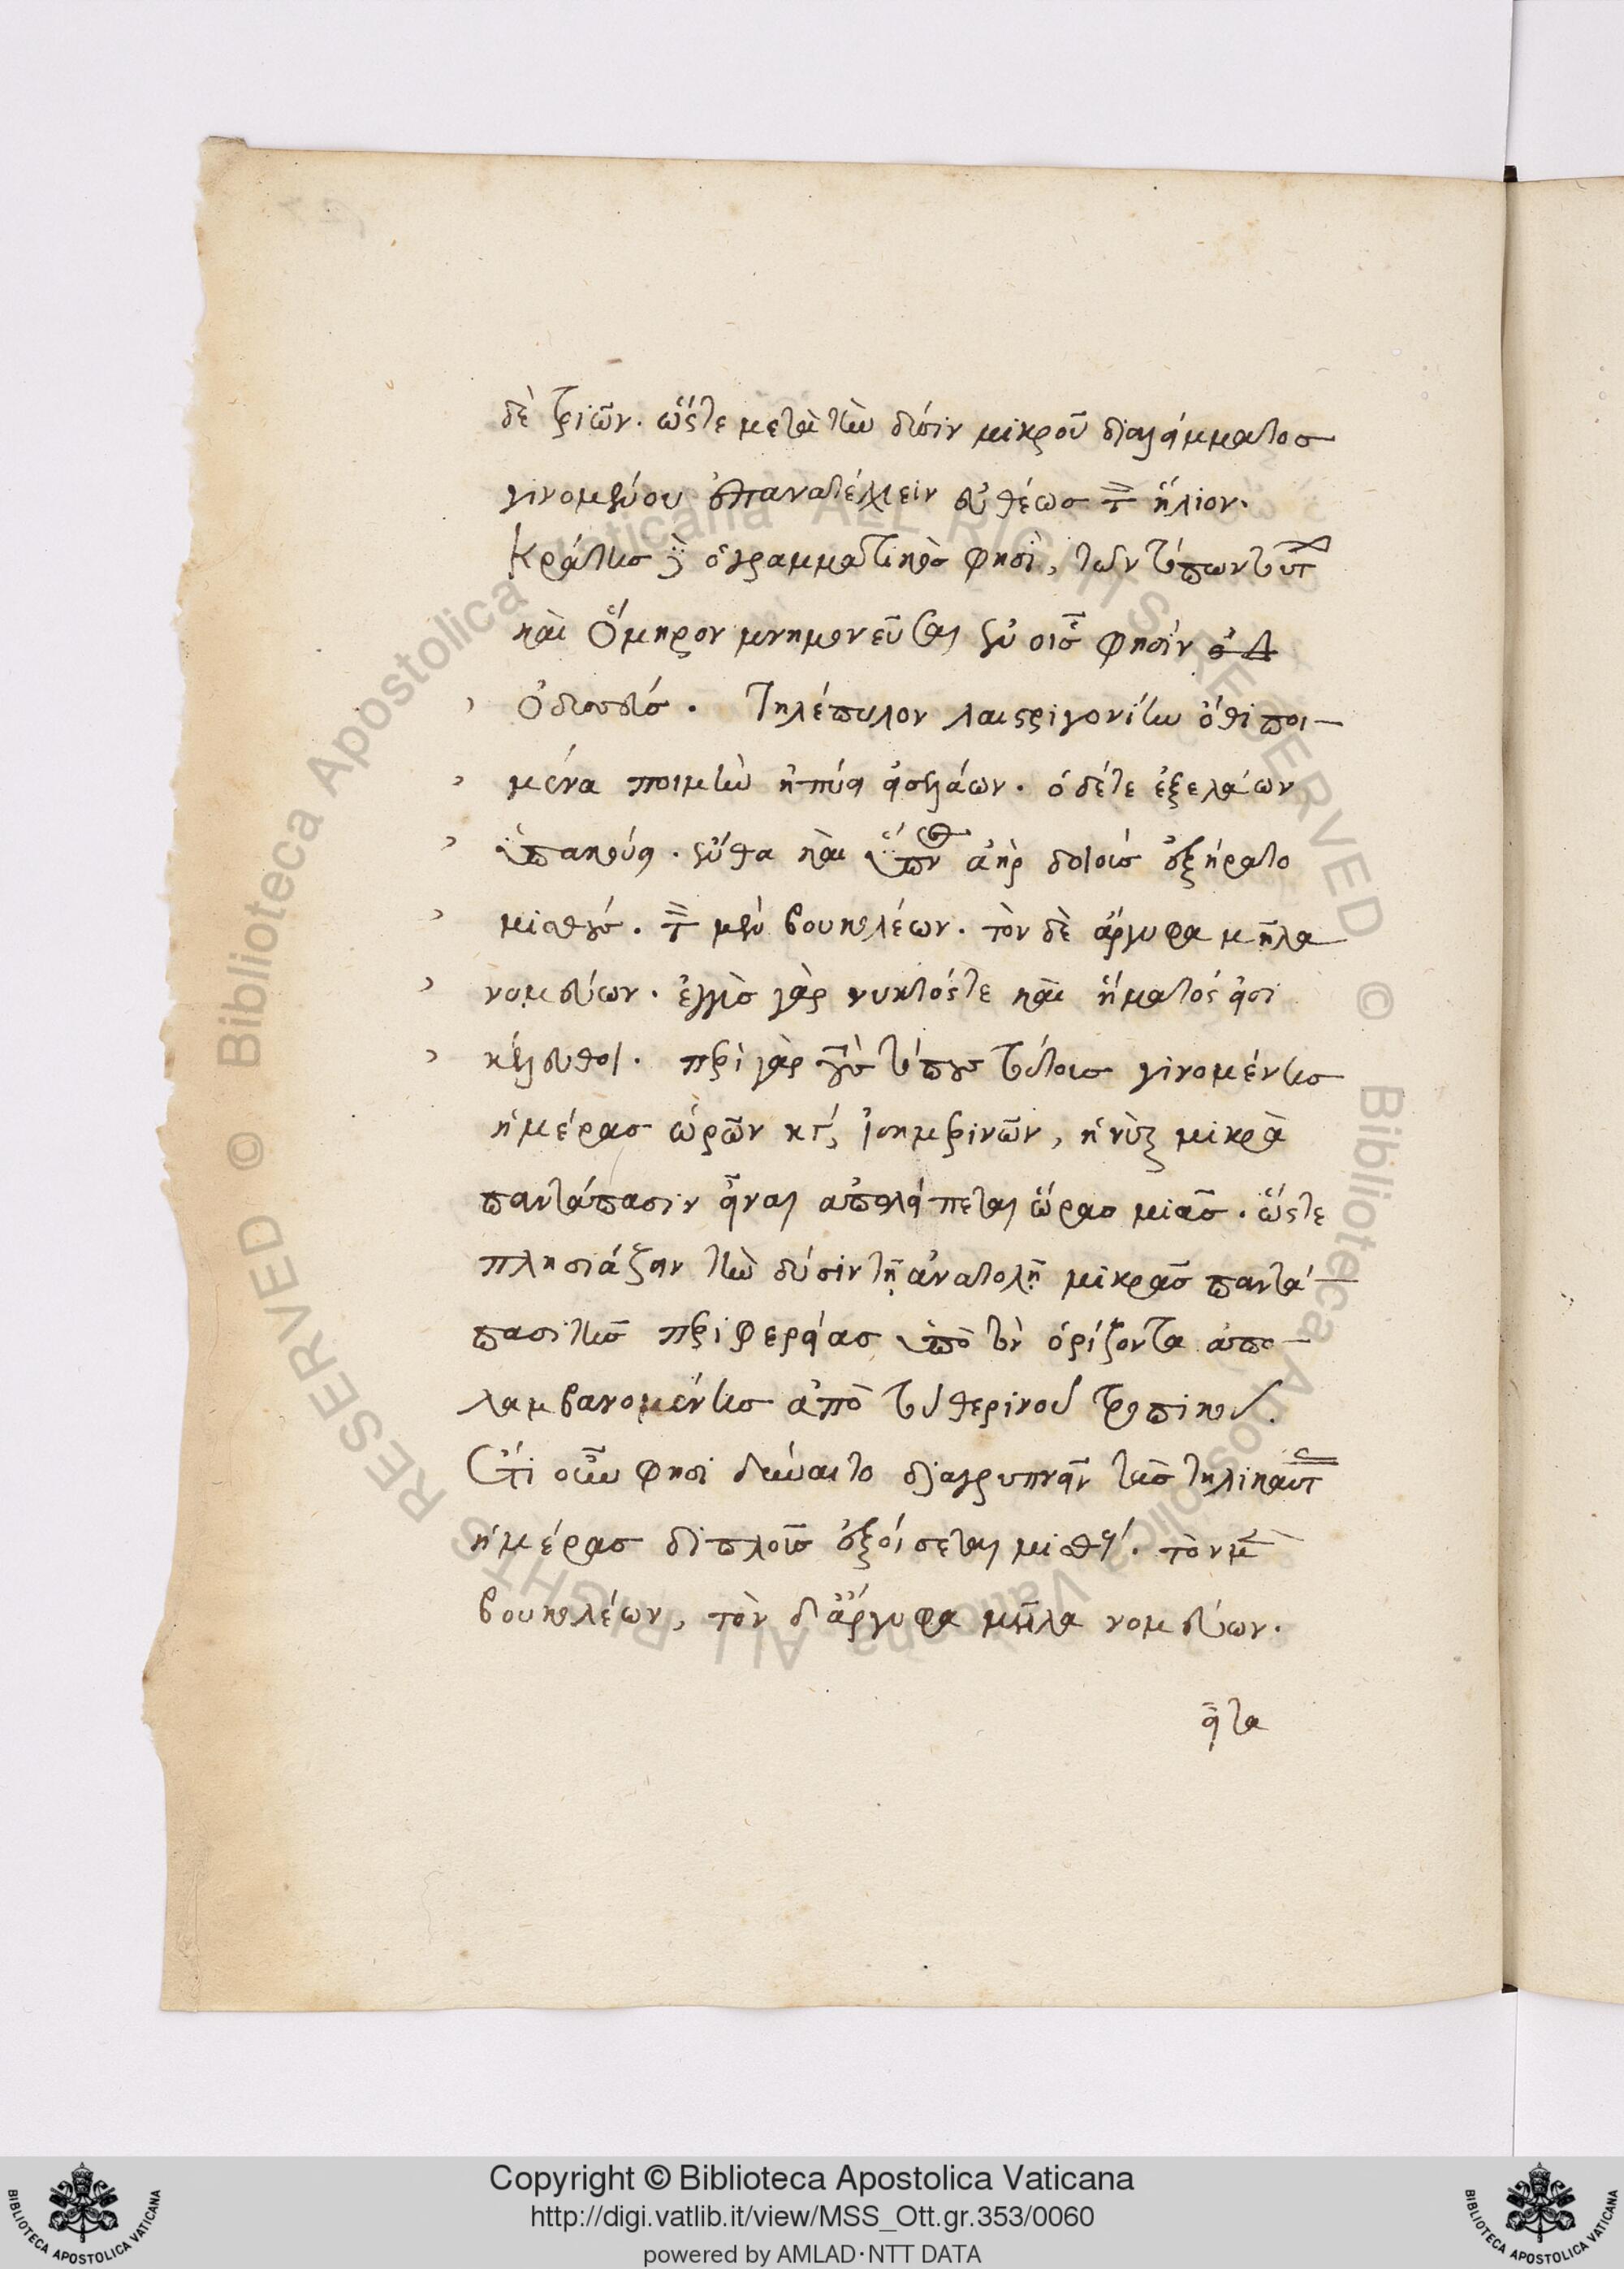 δὲ τριῶν. ὥστε μετὰ τὴν δύσιν μικροῦ διαλείμματος
γινομένου ἐπανατέλλειν εὐθέως τὸν ἥλιον.
Κράτης δὲ ὁ γραμματικὸς φησὶ, τῶν τόπων τούτων
καὶ Ὅμηρον μνημονεῦσαι ἐν οἷς φησὶν
› Ὀδυσσεύς. Τηλέπυλον λαιστριγονίην ὅθι ποι-
› μένα ποιμὴν ἠπύει εἰσελάων. ὁ δέ τε ἐξελάων
› ὑπακούει. ἔνθα καὶ ἄυπνος ἀνὴρ δοιοὺς ἐξήρατο
› μισθούς. τὸν μὲν βουκολέων. τὸν δὲ ἄργυφα μῆλα
› νομεύων. ἐγγὺς γὰρ νυκτός τε καὶ ἤματός εἰσι
› κέλευθοι. περὶ γὰρ τοὺς τόπους τούτους γινομένης
ἡμέρας ὡρῶν κγ, ἰσημερινῶν, ἡ νὺξ μικρὰ
παντάπασιν εἶναι ἀπολείπεται ὥρας μιᾶς. ὥστε
πλησιάζειν τὴν δύσιν τῇ ἀνατολῇ μικρᾶς παντά-
πασι τῆς περιφερείας ὑπὸ τὸν ὁρίζοντα ἀπο-
λαμβανομένης ἀπὸ τοῦ θερινοῦ τροπικοῦ.
Ὅτι οὖν φησι δύναιτο διαγρυπνεῖν τὰς τηλικαύτας
ἡμέρας διπλοῦς ἐξοίσεται μισθούς. τὸν μὲν
βουκολέων, τὸν δ' ἄργυφα μῆλα νομεύων.
εἶτα
© Biblioteca Apostolica Vaticana ALL RIGHTS RESERVED © Biblioteca Apostolica Vaticana ALL RIGHTS RESERVED
Copyright © Biblioteca Apostolica Vaticana
http://digi.vatlib.it/view/MSS_Ott.gr.353/0060
powered by AMLAD·NTT DATA
BIBLIOTECA APOSTOLICA VATICANA
BIBLIOTECA APOSTOLICA VATICANA